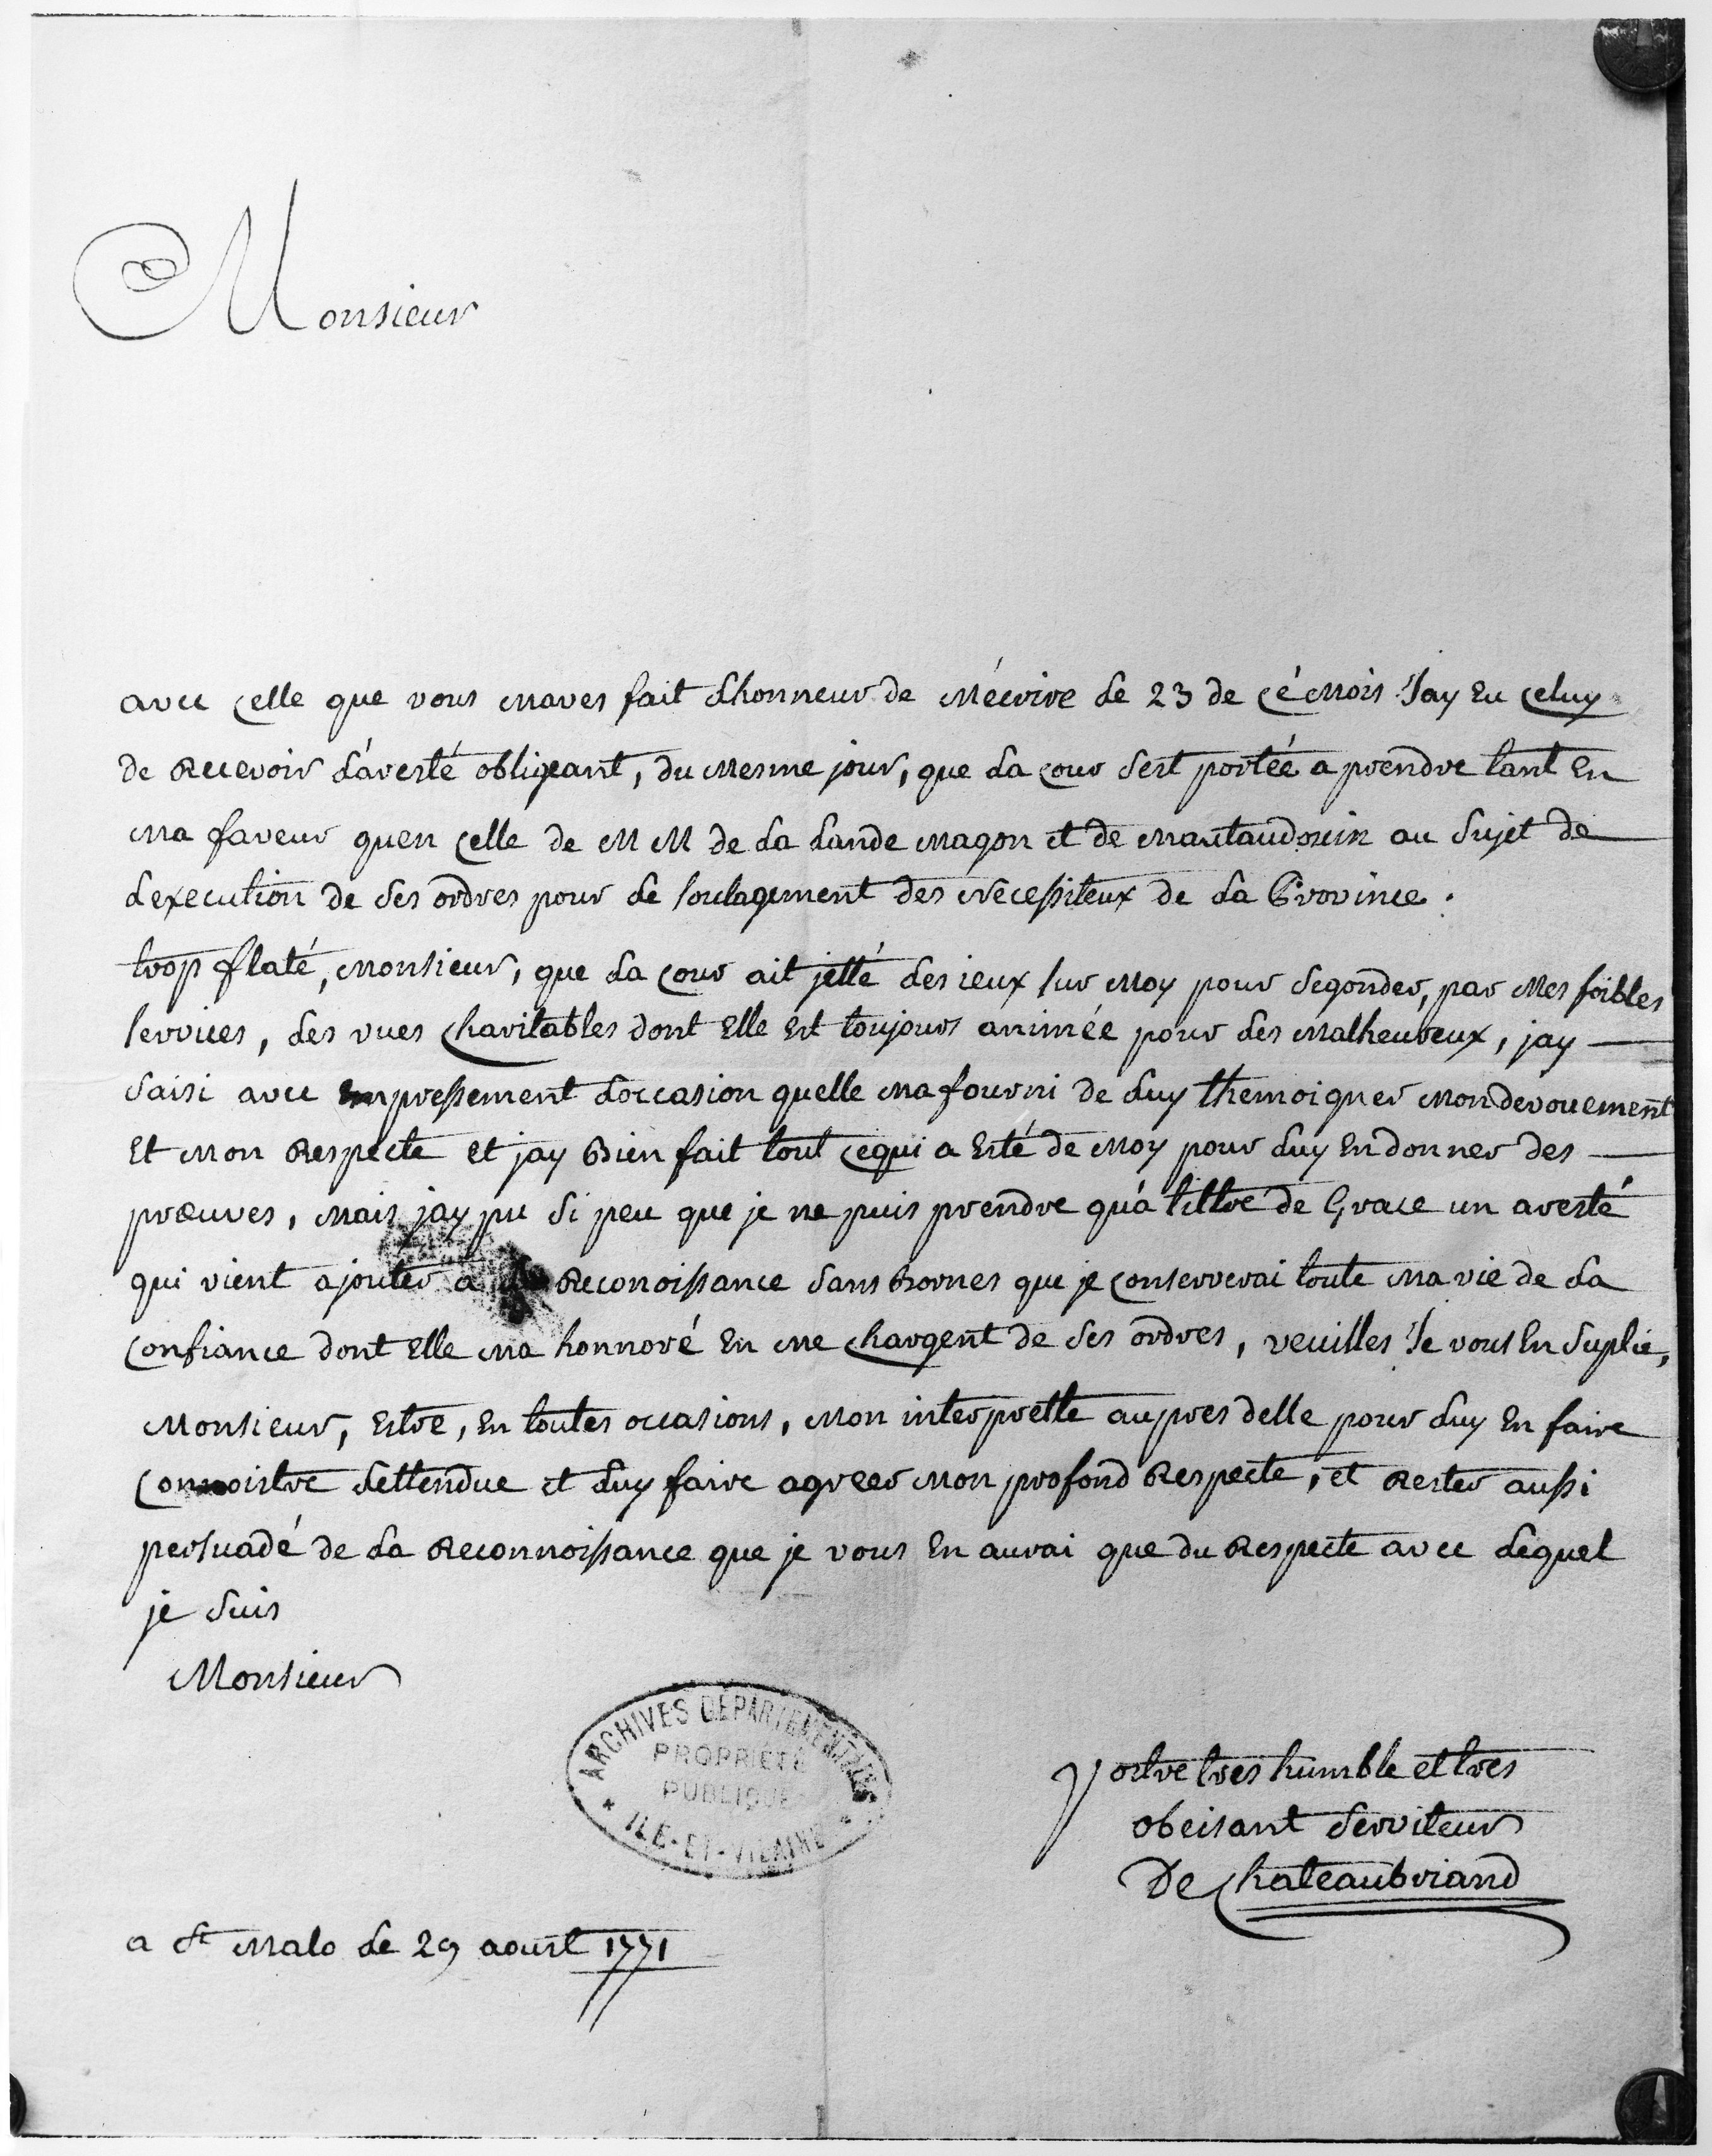 Monsieur
avec celle que vous maves fait Lhonneur de Mécrire Le 23 de Cé Mois Jay Eu Celuy
de Recevoir L'aresté obligeant, du Mesme jour, que La Cour Sest portée a prendre tant En
Ma faveur quen Celle de M M de La Lande Magon et de Montaudouin au Sujet de
Lexecution de Ses ordres pour Le soulagement des Necessiteux de La Province.
trop flaté, Monsieur, que La Cour ait jetté Les ieux sur Moy pour Segonder, par Mes foibles
services, Les vues Charitables dont Elle Est toujours animée pour Les Malheureux, jay
Saisi avec Empressement Loccasion quelle Ma fourni de Luy themoigner Mon devouement
Et Mon Respecte et jay Bien fait tout Cequi a Esté de Moy pour Luy En donner des
prœuves, Mais jay pu Si peu que je ne puis prendre qu'a tittre de Grace un aresté
qui vient ajouter a La Reconoissance Sans Bornes que je Conserverai toute Ma vie de La
Confiance dont Elle Ma honnoré En Me Chargent de Ses ordres, veuilles Je vous En Suplie,
Monsieur, Estre, En toutes occasions, Mon interprette aupres delle pour Luy En faire
Connoistre Lettendue et Luy faire agreer Mon profond Respecte, et Rester aussi
persuadé de La Reconnoissance que je vous En aurai que du Respecte avec Lequel
je Suis
Monsieur
ARCHIVES DÉPARTEMENTALES
PROPRIÉTÉ
PUBLIQUE
* ILE-ET-VILAINE *
Vostre tres humble et tres
obeisant Serviteur
De Chateaubriand
a St Malo Le 29 aoust 1771